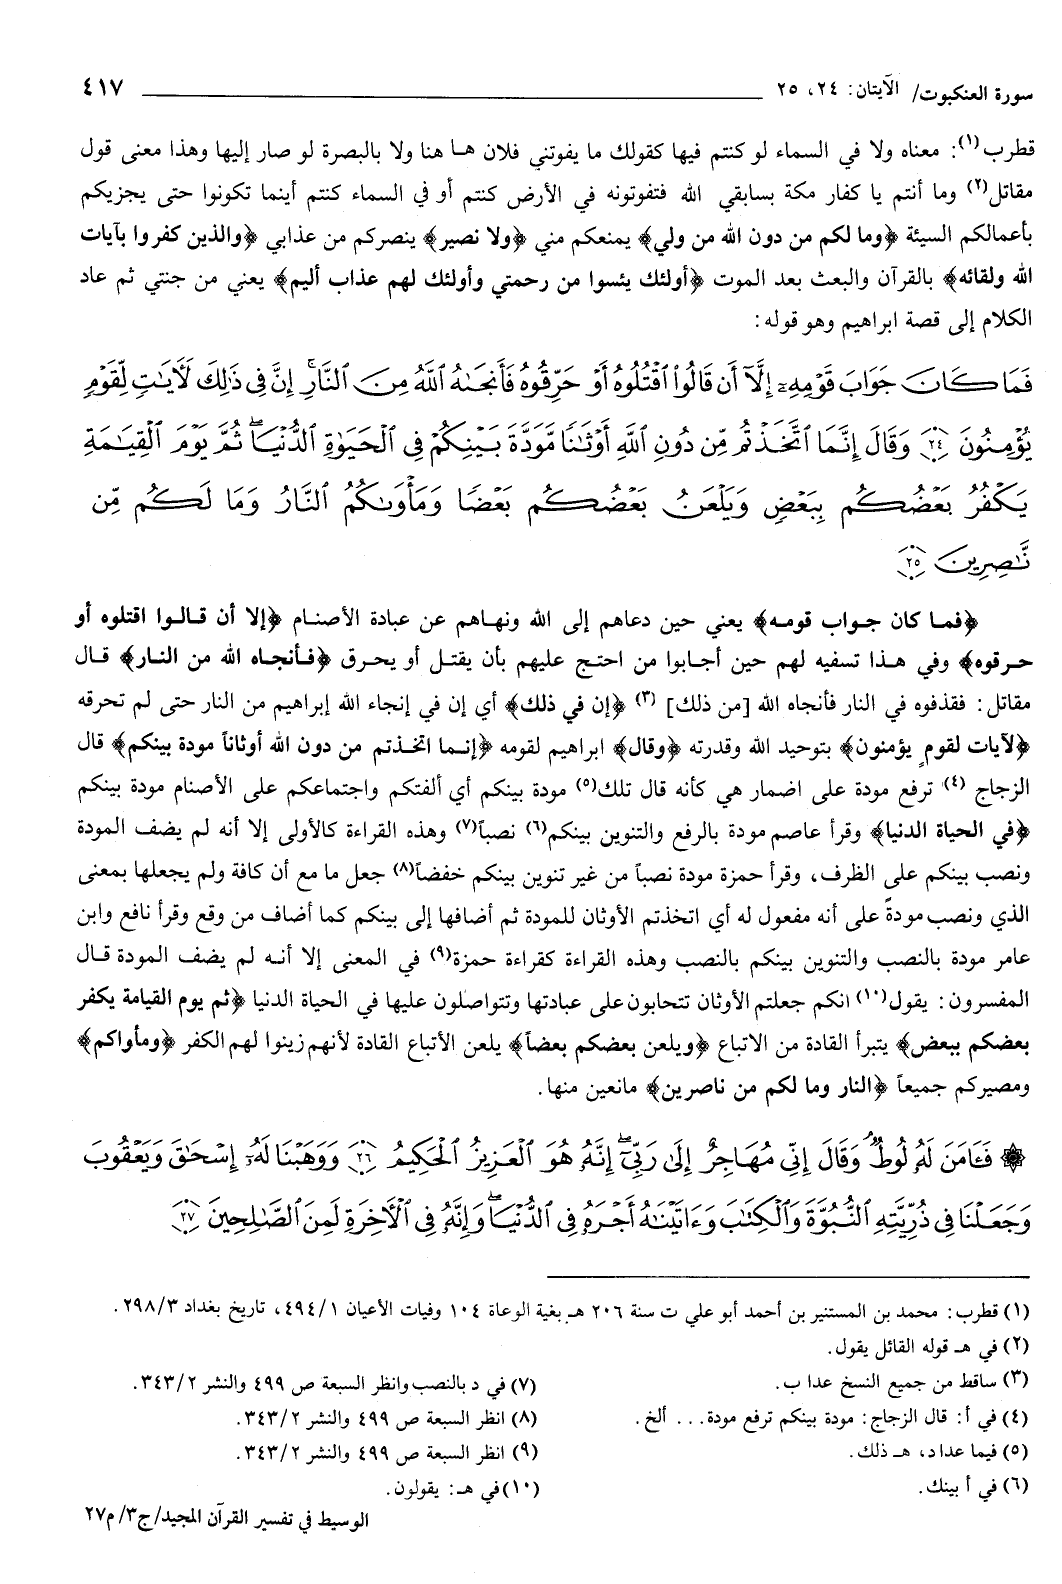 سورة العنكبوت/ الآيتان: ٢٤، ٢٥ ٤١٧
قطرب(١): معناه ولا في السماء لو كنتم فيها كقولك ما يفوتني فلان هـا هنا ولا بالبصرة لو صار إليها وهذا معنى قول
مقاتل(٢) وما أنتم يا كفار مكة بسابقي الله فتفوتونه في الأرض كنتم أو في السماء كنتم أينما تكونوا حتى يجزيكم
بأعمالكم السيئة ﴿وما لكم من دون الله من ولي﴾ يمنعكم مني ﴿ولا نصير﴾ ينصركم من عذابي ﴿والذين كفروا بآيات
الله ولقائه﴾ بالقرآن والبعث بعد الموت ﴿أولئك يئسوا من رحمتي وأولئك لهم عذاب أليم﴾ يعني من جنتي ثم عاد
الكلام إلى قصة ابراهيم وهو قوله:
فَمَا كَانَ جَوَابَ قَوْمِهِۦٓ إِلَّآ أَن قَالُوا۟ ٱقْتُلُوهُ أَوْ حَرِّقُوهُ فَأَنجَىٰهُ ٱللَّهُ مِنَ ٱلنَّارِ ۚ إِنَّ فِى ذَٰلِكَ لَـَٔايَـٰتٍ لِّقَوْمٍ
يُؤْمِنُونَ ﴿٢٤﴾ وَقَالَ إِنَّمَا ٱتَّخَذْتُم مِّن دُونِ ٱللَّهِ أَوْثَـٰنًا مَّوَدَّةَ بَيْنِكُمْ فِى ٱلْحَيَوٰةِ ٱلدُّنْيَا ۖ ثُمَّ يَوْمَ ٱلْقِيَـٰمَةِ
يَكْفُرُ بَعْضُكُم بِبَعْضٍ وَيَلْعَنُ بَعْضُكُم بَعْضًا وَمَأْوَىٰكُمُ ٱلنَّارُ وَمَا لَكُم مِّن
نَّـٰصِرِينَ ﴿٢٥﴾
﴿فمـا كان جـواب قومـه﴾ يعني حين دعاهم إلى الله ونهـاهم عن عبادة الأصنـام ﴿إلا أن قـالـوا اقتلوه أو
حـرقوه﴾ وفي هـذا تسفيه لهم حين أجـابوا من احتـج عليهم بأن يقتـل أو يحـرق ﴿فـأنجاه الله من النـار﴾ قـال
مقاتل: فقذفوه في النار فأنجاه الله [من ذلك] (٣) ﴿إن في ذلك﴾ أي إن في إنجاء الله إبراهيم من النار حتى لم تحرقه
﴿لآيات لقومٍ يؤمنون﴾ بتوحيد الله وقدرته ﴿وقال﴾ ابراهيم لقومه ﴿إنـما اتخذتم من دون الله أوثاناً مودة بينكم﴾ قال
الزجاج (٤) ترفع مودة على اضمار هي كأنه قال تلك(٥) مودة بينكم أي ألفتكم واجتماعكم على الأصنام مودة بينكم
﴿في الحياة الدنيا﴾ وقرأ عاصم مودة بالرفع والتنوين بينكم(٦) نصباً(٧) وهذه القراءة كالأولى إلا أنه لم يضف المودة
ونصب بينكم على الظرف، وقرأ حمزة مودة نصباً من غير تنوين بينكم خفضاً(٨) جعل ما مع أن كافة ولم يجعلها بمعنى
الذي ونصب مودةً على أنه مفعول له أي اتخذتم الأوثان للمودة ثم أضافها إلى بينكم كما أضاف من وقع وقرأ نافع وابن
عامر مودة بالنصب والتنوين بينكم بالنصب وهذه القراءة كقراءة حمزة(٩) في المعنى إلا أنـه لم يضف المودة قـال
المفسرون: يقول(١٠) انكم جعلتم الأوثان تتحابون على عبادتها وتتواصلون عليها في الحياة الدنيا ﴿ثم يوم القيامة يكفر
بعضكم ببعض﴾ يتبرأ القادة من الاتباع ﴿ويلعن بعضكم بعضاً﴾ يلعن الأتباع القادة لأنهم زينوا لهم الكفر ﴿ومأواكم﴾
ومصيركم جميعاً ﴿النار وما لكم من ناصرين﴾ مانعين منها.
۞ فَـَٔامَنَ لَهُۥ لُوطٌ ۘ وَقَالَ إِنِّى مُهَاجِرٌ إِلَىٰ رَبِّىٓ ۖ إِنَّهُۥ هُوَ ٱلْعَزِيزُ ٱلْحَكِيمُ ﴿٢٦﴾ وَوَهَبْنَا لَهُۥٓ إِسْحَـٰقَ وَيَعْقُوبَ
وَجَعَلْنَا فِى ذُرِّيَّتِهِ ٱلنُّبُوَّةَ وَٱلْكِتَـٰبَ وَءَاتَيْنَـٰهُ أَجْرَهُۥ فِى ٱلدُّنْيَا ۖ وَإِنَّهُۥ فِى ٱلْـَٔاخِرَةِ لَمِنَ ٱلصَّـٰلِحِينَ ﴿٢٧﴾
(١) قطرب: محمد بن المستنير بن أحمد أبو علي ت سنة ٢٠٦ هـ بغية الوعاة ١٠٤ وفيات الأعيان ٤٩٤/١، تاريخ بغداد ٢٩٨/٣.
(٢) في هـ قوله القائل يقول.
(٣) ساقط من جميع النسخ عدا ب.
(٤) في أ: قال الزجاج: مودة بينكم ترفع مودة... ألخ.
(٥) فيما عدا د، هـ ذلك.
(٦) في أ بينك.
(٧) في د بالنصب وانظر السبعة ص ٤٩٩ والنشر ٣٤٣/٢.
(٨) انظر السبعة ص ٤٩٩ والنشر ٣٤٣/٢.
(٩) انظر السبعة ص ٤٩٩ والنشر ٣٤٣/٢.
(١٠) في هـ: يقولون.
الوسيط في تفسير القرآن المجيد/ج٣/م٢٧